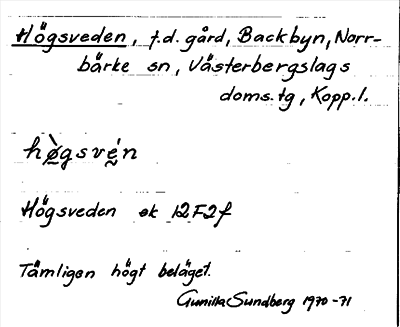 Högsveden, f.d. gård, Backbyn, Norr-
bärke sn, Västerbergslags
doms. tg, Kopp. l.
hø̀gsvé̤n
Högsveden ek 12F2f
Tämligen högt beläget.
Gunilla Sundberg 1970-71